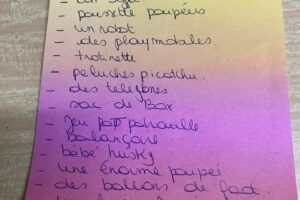 - poussette poupées
- un robot
- des playmobiles
- trotinette
- peluches picatchu.
- des telefones
- sac de Box
- jeu pat patrouille
- balançoire
- bébé husky
- une énorme poupée
- des ballons de foot.